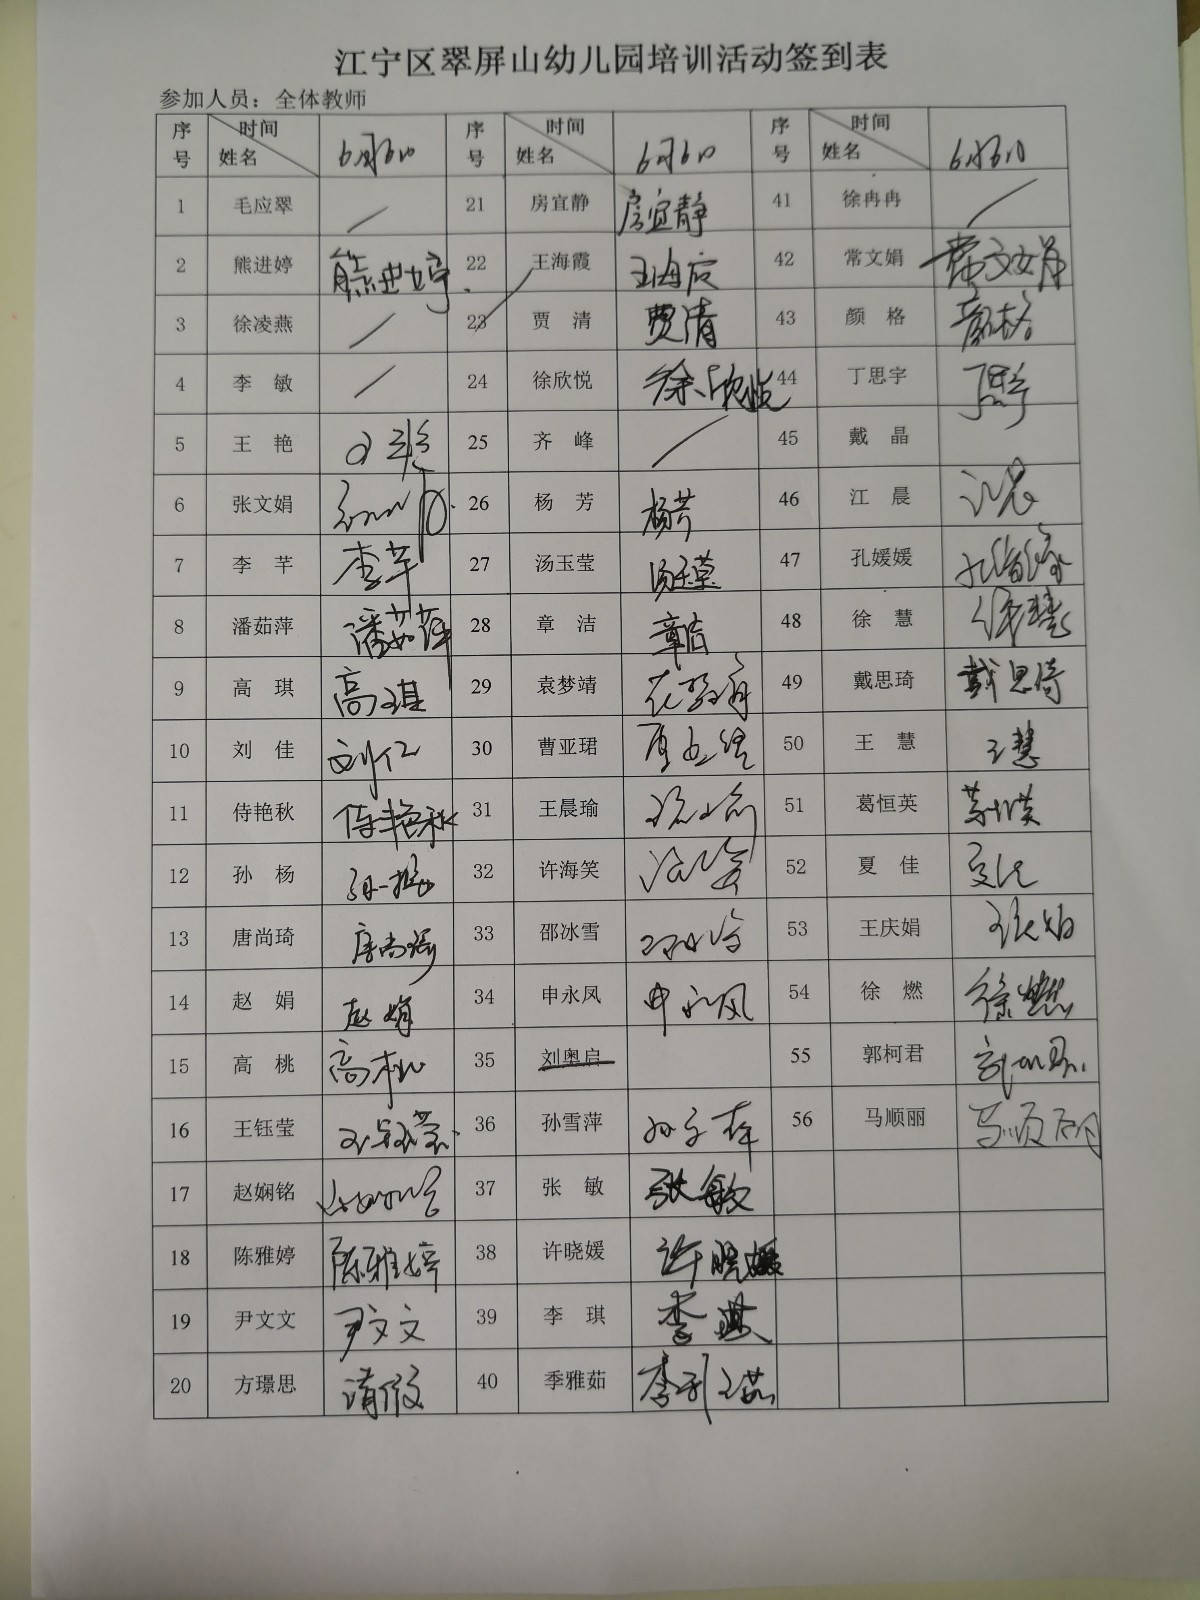 江宁区翠屏山幼儿园培训活动签到表
参加人员：全体教师
序号 时间 姓名 6月6日 序号 时间 姓名 6月6日 序号 时间 姓名 6月6日
1 毛应翠 21 房宜静 房宜静 41 徐冉冉
2 熊进婷 熊进婷 22 王海霞 王海霞 42 常文娟 常文娟
3 徐凌燕 23 贾 清 费清 43 颜 格 颜格
4 李 敏 24 徐欣悦 徐欣悦 44 丁思宇 丁思宇
5 王 艳 王艳 25 齐 峰 45 戴 晶
6 张文娟 26 杨 芳 杨芳 46 江 晨 江晨
7 李 芊 李芊 27 汤玉莹 汤玉莹 47 孔媛媛 孔媛媛
8 潘茹萍 潘茹萍 28 章 洁 章洁 48 徐 慧 徐慧
9 高 琪 高琪 29 袁梦靖 49 戴思琦 戴思琦
10 刘 佳 刘仁 30 曹亚珺 50 王 慧 王慧
11 侍艳秋 侍艳秋 31 王晨瑜 51 葛恒英
12 孙 杨 孙杨 32 许海笑 52 夏 佳
13 唐尚琦 唐尚琦 33 邵冰雪 53 王庆娟
14 赵 娟 赵娟 34 申永凤 申永凤 54 徐 燃 徐燃
15 高 桃 高桃 35 刘奥启 55 郭柯君
16 王钰莹 王钰莹 36 孙雪萍 56 马顺丽 马顺丽
17 赵娴铭 37 张 敏 张敏
18 陈雅婷 陈雅婷 38 许晓媛 许晓媛
19 尹文文 尹文文 39 李 琪 李琪
20 方璟思 请假 40 季雅茹 季雅茹